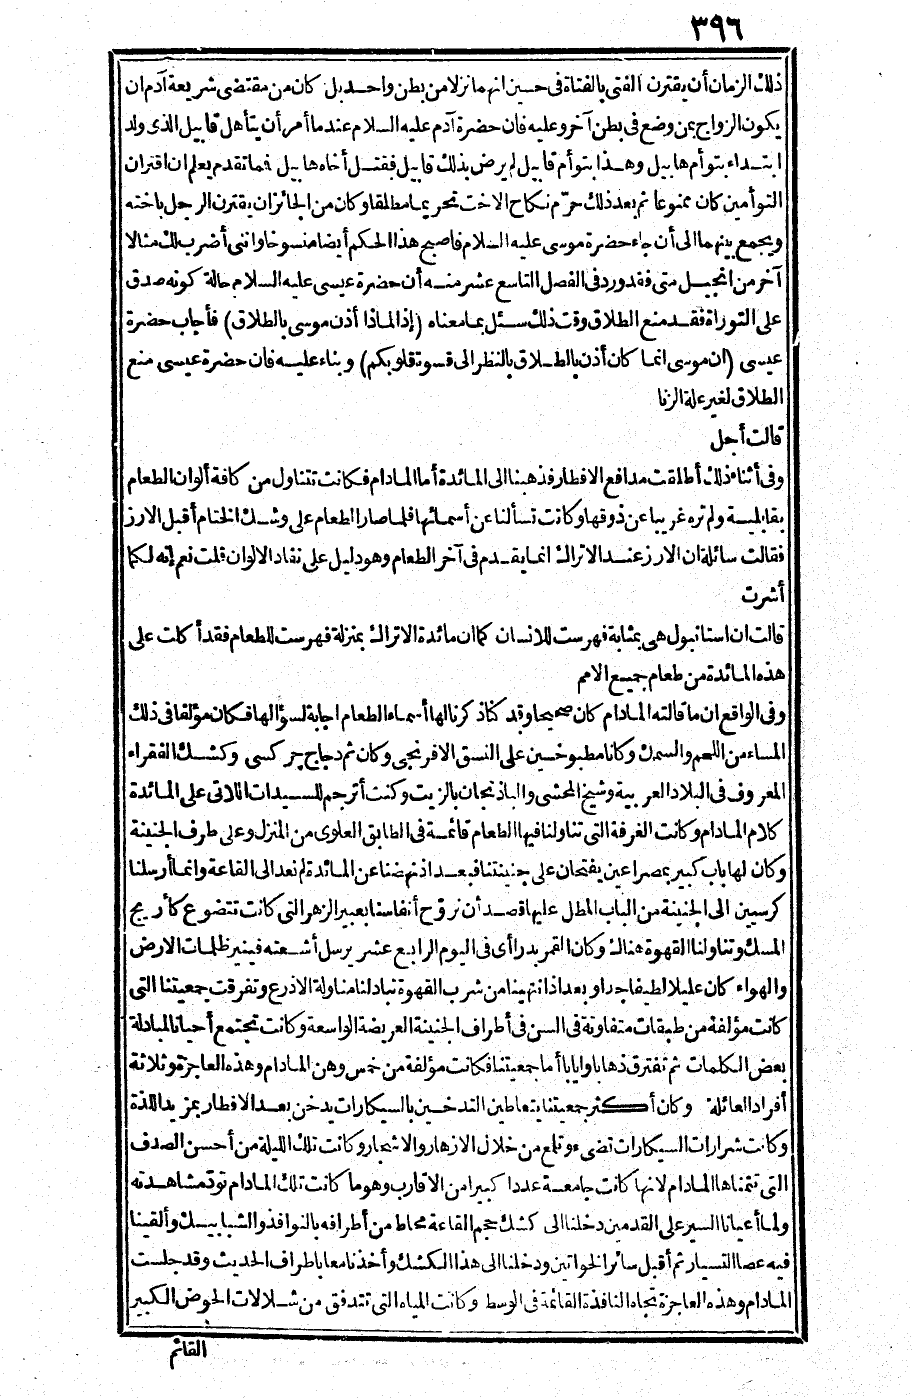 ٣٩٦
ذلك الزمان أن يقترن الفتى بالفتاة فى حين انهما نزلا من بطن واحد بل كان من مقتضى شريعة آدم ان
يكون الزواج بمن وضع فى بطن آخر وعليه فان حضرة آدم عليه السلام عندما أمر أن يتأهل قابيل الذى ولد
ابتداء بتوأم هابيل وهذا بتوأم قابيل لم يرض بذلك قابيل فقتل أخاه هابيل فما تقدم يعلم ان اقتران
التوأمين كان ممنوعا ثم بعد ذلك حرّم نكاح الاخت تحريما مطلقا وكان من الجائز ان يقترن الرجل باخته
ويجمع بينهما الى أن جاء حضرة موسى عليه السلام فاصبح هذا الحكم أيضا منسوخا وانى أضرب لك مثالا
آخر من انجيل متى فقد ورد فى الفصل التاسع عشر منه أن حضرة عيسى عليه السلام حالة كونه صدق
على التوراة فقد منع الطلاق وقت ذلك سئل بما معناه (إذا لماذا أذن موسى بالطلاق) فأجاب حضرة
عيسى (ان موسى انما كان أذن بالطلاق بالنظر الى قسوة قلوبكم) وبناء عليه فان حضرة عيسى منع
الطلاق لغير علة الزنا
قالت أجل
وفى أثناء ذلك أطلقت مدافع الافطار فذهبنا الى المائدة أما المادام فكانت تتناول من كافة ألوان الطعام
بقابلية ولم تره غريبا عن ذوقها وكانت تسألنا عن أسمائها فلما صار الطعام على وشك الختام أقبل الارز
فقالت سائلة ان الارز عند الاتراك انما يقدم فى آخر الطعام وهو دليل على نفاد الالوان قلت نعم إنه لكما
أشرت
قالت ان استانبول هى بمثابة فهرست للانسان كما ان مائدة الاتراك بمنزلة فهرست للطعام فقد أكلت على
هذه المائدة من طعام جميع الامم
وفى الواقع ان ما قالته المادام كان صحيحا وقد كنا ذكرنا لها أسماء الطعام اجابة لسؤالها فكان مؤلفا فى ذلك
المساء من اللحم والسمك وكانا مطبوخين على النسق الافرنجى وكان ثم دجاج جركسى وكشك الفقراء
المعروف فى البلاد العربية وشيخ المحشى والباذنجان بالزيت وكنت أترجم للسيدات اللاتى على المائدة
كلام المادام وكانت الغرفة التى تناولنا فيها الطعام قائمة فى الطابق العلوى من المنزل وعلى طرف الجنينة
وكان لها باب كبير بمصراعين يفتحان على جنينتنا فبعد اذ نهضنا عن المائدة لم نعد الى القاعة وانما أرسلنا
كرسيين الى الجنينة من الباب المطل عليها قصد أن نروّح أنفاسنا بعبير الزهر التى كانت تتضوع كأريج
المسك وتناولنا القهوة هناك وكان القمر بدرا أى فى اليوم الرابع عشر يرسل أشعته فينير ظلمات الارض
والهواء كان عليلا لطيفا جدا وبعد اذ انتهينا من شرب القهوة تبادلنا مناولة الاذرع وتفرقت جمعيتنا التى
كانت مؤلفة من طبقات متفاوتة فى السن فى أطراف الجنينة العريضة الواسعة وكانت تجتمع أحيانا لمبادلة
بعض الكلمات ثم تفترق ذهابا وايابا أما جمعيتنا فكانت مؤلفة من خمس وهن المادام وهذه العاجزة وثلاثة
أفراد العائلة وكان أكثر جمعيتنا يتعاطين التدخين بالسيكارات يدخن بعد الافطار بمزيد اللذة
وكانت شرارات السيكارات تضىء وتلمع من خلال الازهار والاشجار وكانت تلك الليلة من أحسن الصدف
التى تتمناها المادام لانها كانت جامعة عددا كبيرا من الاقارب وهو ما كانت تلك المادام تود مشاهدته
ولما أعيانا السير على القدمين دخلنا الى كشك بحجم القاعة محاط من أطرافه بالنوافذ والشبابيك وألقينا
فيه عصا التسيار ثم أقبل سائر الخواتين ودخلنا الى هذا الكشك وأخذنا معا باطراف الحديث وقد جلست
المادام وهذه العاجزة تجاه النافذة القائمة فى الوسط وكانت المياه التى تتدفق من شلالات الحوض الكبير
القائم